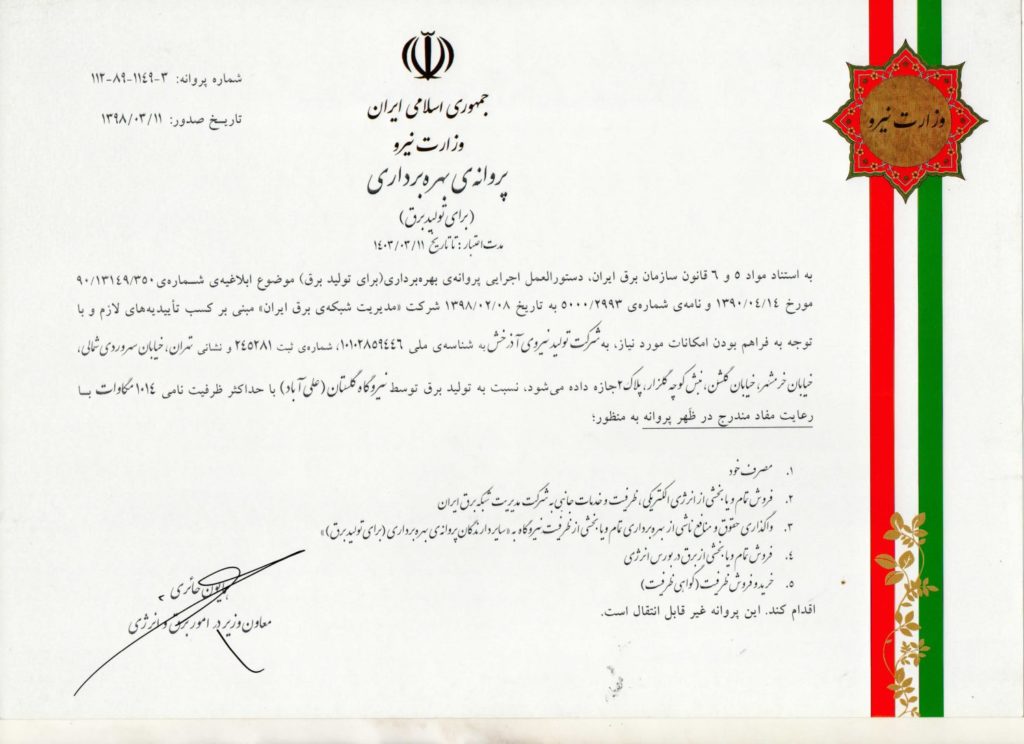 شماره پروانه: ۳-۱۱۴۹-۸۹-۱۱۲
تاریخ صدور: ۱۳۹۸/۰۳/۱۱
جمهوری اسلامی ایران
وزارت نیرو
پروانه‌ی بهره‌برداری
(برای تولید برق)
مدت اعتبار: تا تاریخ ۱۴۰۳/۰۳/۱۱
وزارت نیرو
به استناد مواد ۵ و ۶ قانون سازمان برق ایران، دستورالعمل اجرایی پروانه‌ی بهره‌برداری(برای تولید برق) موضوع ابلاغیه‌ی شماره‌ی ۹۰/۱۳۱۴۹/۳۵۰
مورخ ۱۳۹۰/۰۴/۱۴ و نامه‌ی شماره‌ی ۵۰۰۰/۲۹۹۳ به تاریخ ۱۳۹۸/۰۲/۰۸ شرکت «مدیریت شبکه‌ی برق ایران» مبنی بر کسب تأییدیه‌های لازم و با
توجه به فراهم بودن امکانات مورد نیاز، به شرکت تولید نیروی آذرخش به شناسه‌ی ملی ۱۰۱۰۲۸۵۹۴۴۶، شماره‌ی ثبت ۲۴۵۲۸۱ و نشانی تهران، خیابان سهروردی شمالی،
خیابان خرمشهر، خیابان گلشن، نبش کوچه گلزار، پلاک ۲جازه داده می‌شود، نسبت به تولید برق توسط نیروگاه گلستان (علی آباد) با حداکثر ظرفیت نامی ۱۰۱۴ مگاوات بـا
رعایت مفاد مندرج در ظَهر پروانه به منظور؛
۱. مصرف خود
۲. فروش تمام و یا بخشی از انرژی الکتریکی، ظرفیت و خدمات جانبی به شرکت مدیریت شبکه برق ایران
۳. واگذاری حقوق و منافع ناشی از بهره‌برداری تمام و یا بخشی از ظرفیت نیروگاه به «سایر دارندگان پروانه‌ی بهره‌برداری (برای تولید برق)»
۴. فروش تمام و یا بخشی از برق در بورس انرژی
۵. خرید و فروش ظرفیت (گواهی ظرفیت)
اقدام کند. این پروانه غیر قابل انتقال است.
همایون حائری
معاون وزیر در امور برق و انرژی